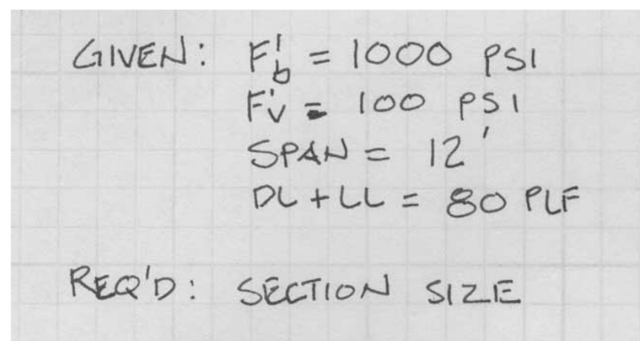 GIVEN: F'b = 1000 PSI
F'v = 100 PSI
SPAN = 12'
DL + LL = 80 PLF
REQ'D: SECTION SIZE